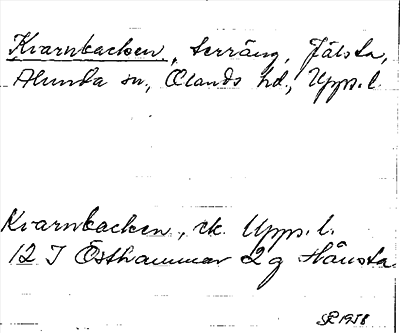 Kvarnbacken, terräng, Jälsta,
Alunda sn, Olands hd., Upps. l.
Kvarnbacken, ek. Upps. l.
12 I Östhammar 2 g Hånsta
1958